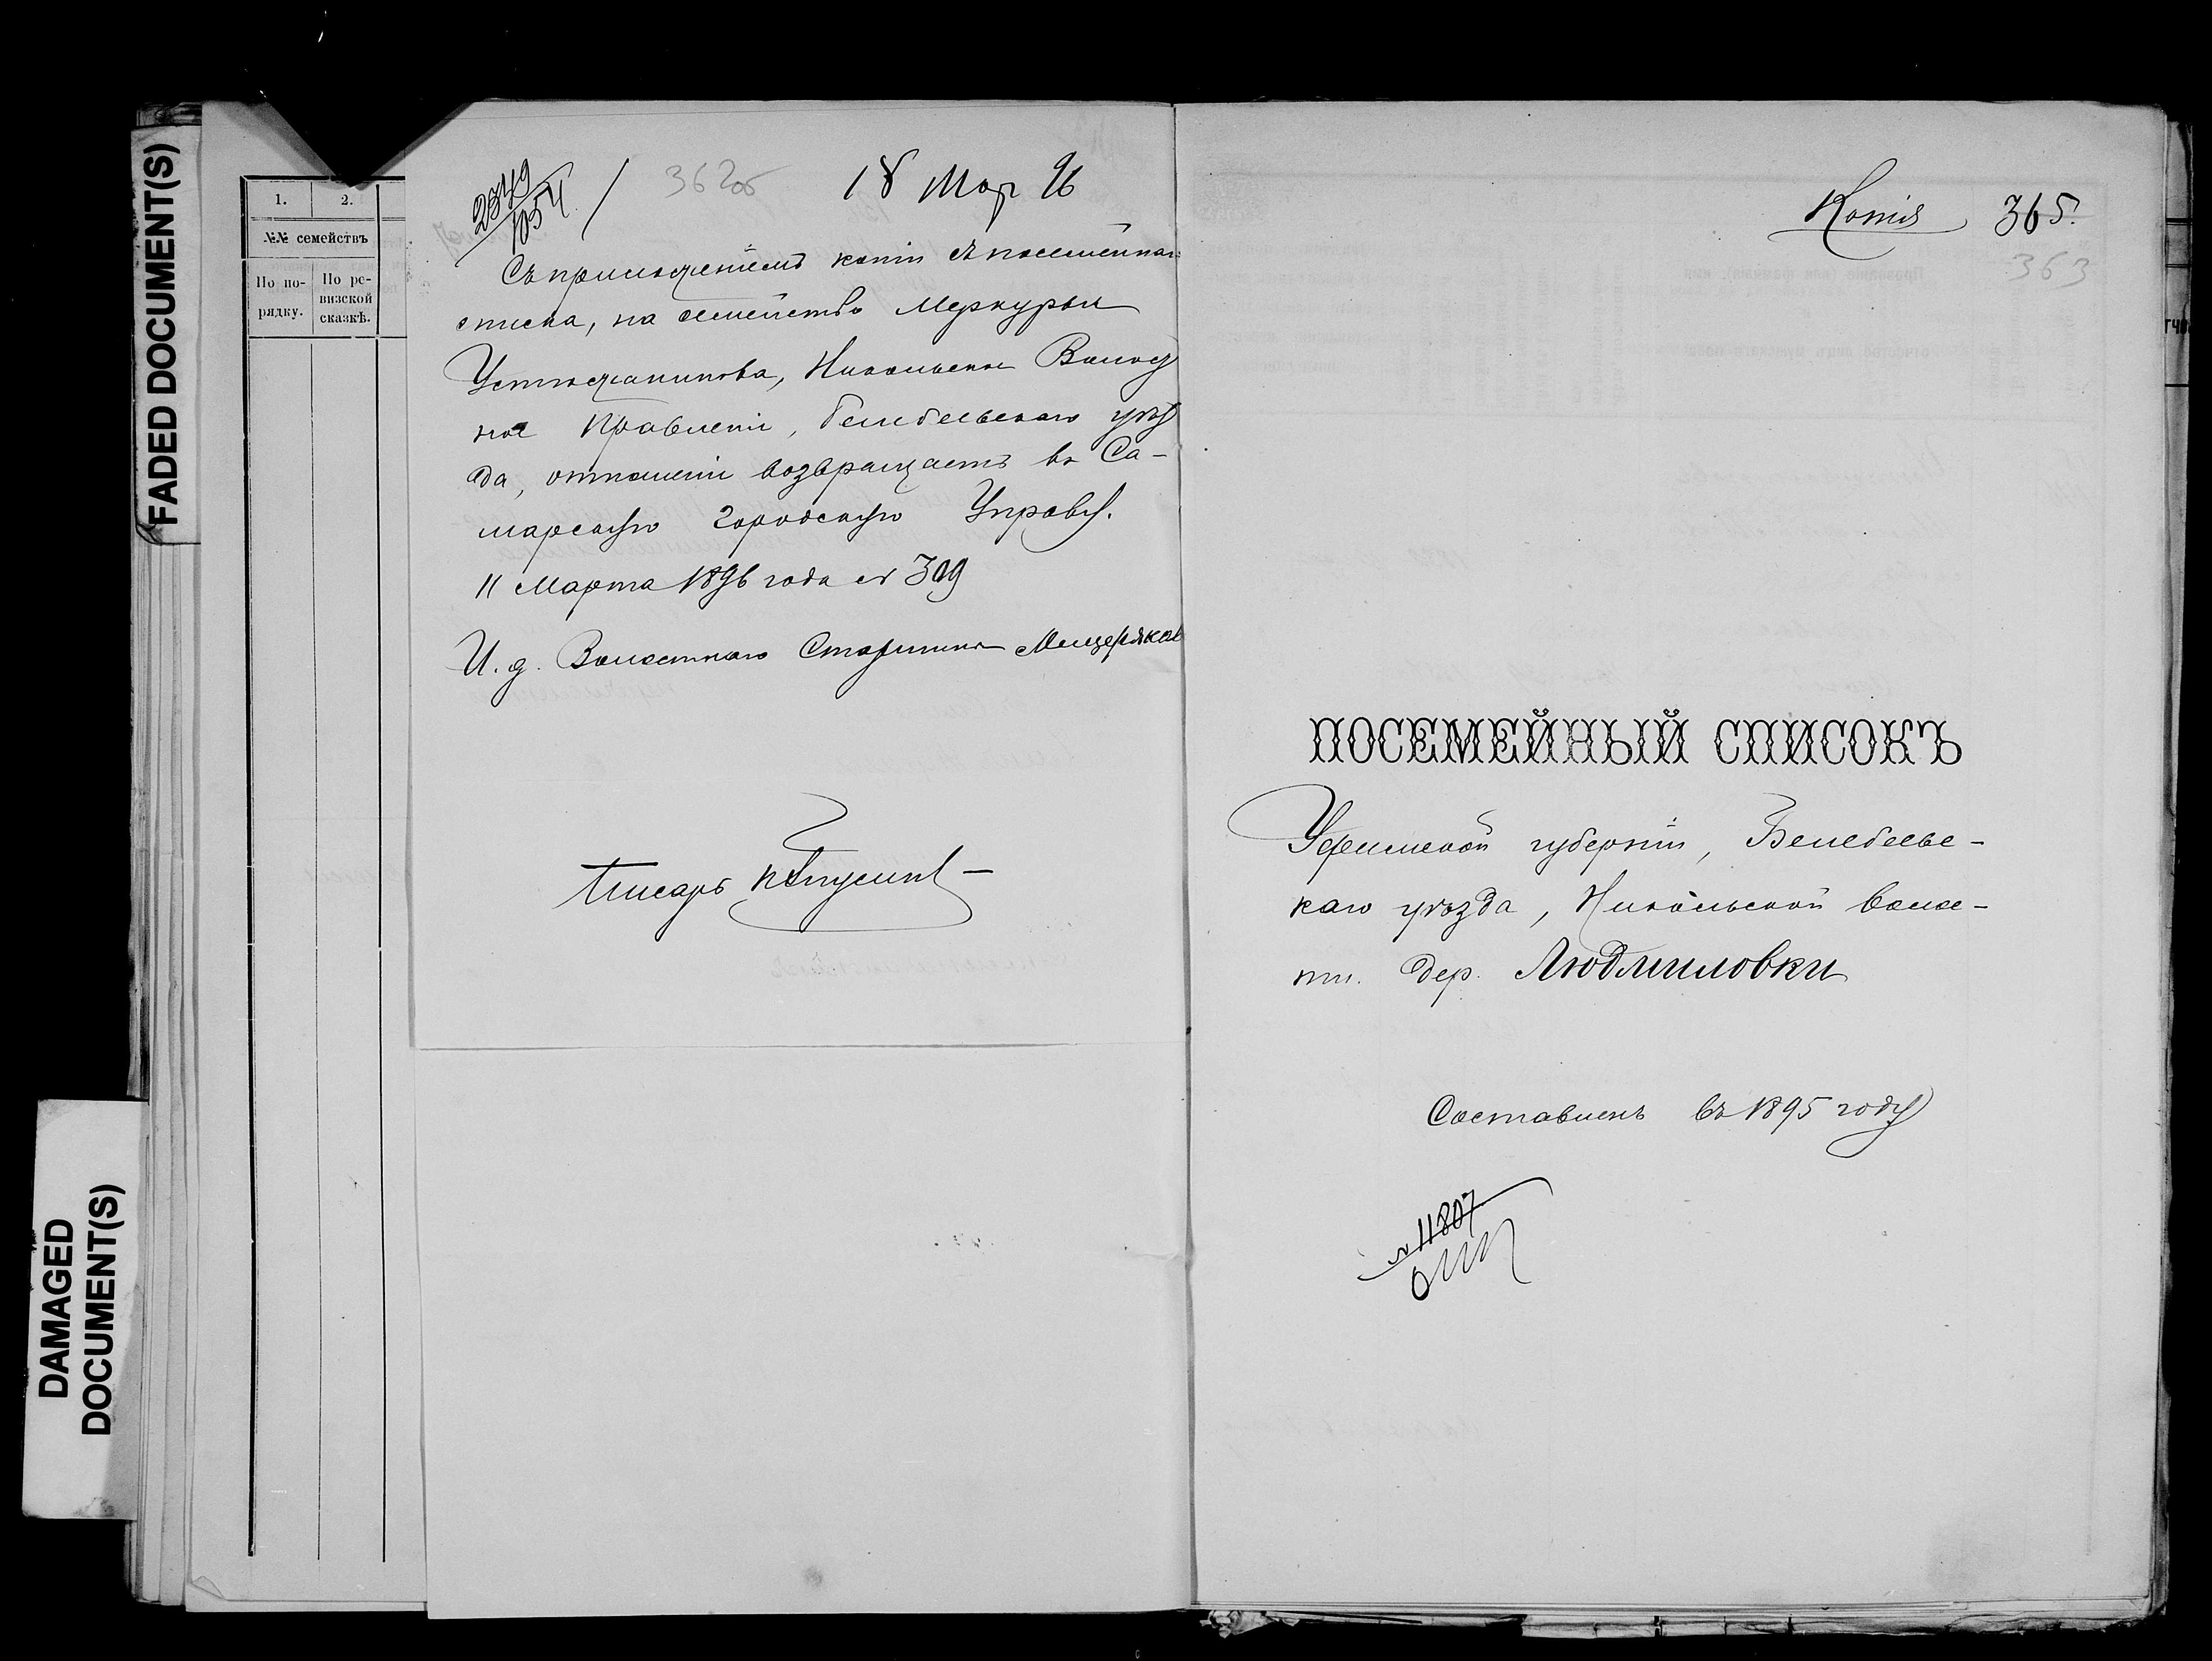 FADED DOCUMENT(S)
DAMAGED
DOCUMENT(S)
1. 2.
№№ семействъ
По по-
рядку.
По ре-
визской
сказкѣ.
2349
1054
362об
18 Мар 96
Съ приложеніемъ копіи съ посемейнаго
списка, на семейство Меркурья
Устюжанинова, Никольское Волост
ное Правленіе, Белебеевскаго уѣз
да, отношеніе возвращаетъ въ Са-
марскую Городскую Управу.
11 Марта 1896 года № 309
И. д. Волостнаго Старшины Мещеряков
Писарь
Копія 365.
363
ПОСЕМЕЙНЫЙ СПИСОКЪ
Уфимской губерніи, Белебеевс-
каго уѣзда, Никольской волос-
ти. дер. Людмиловки
Составленъ въ 1895 году
№ 11807